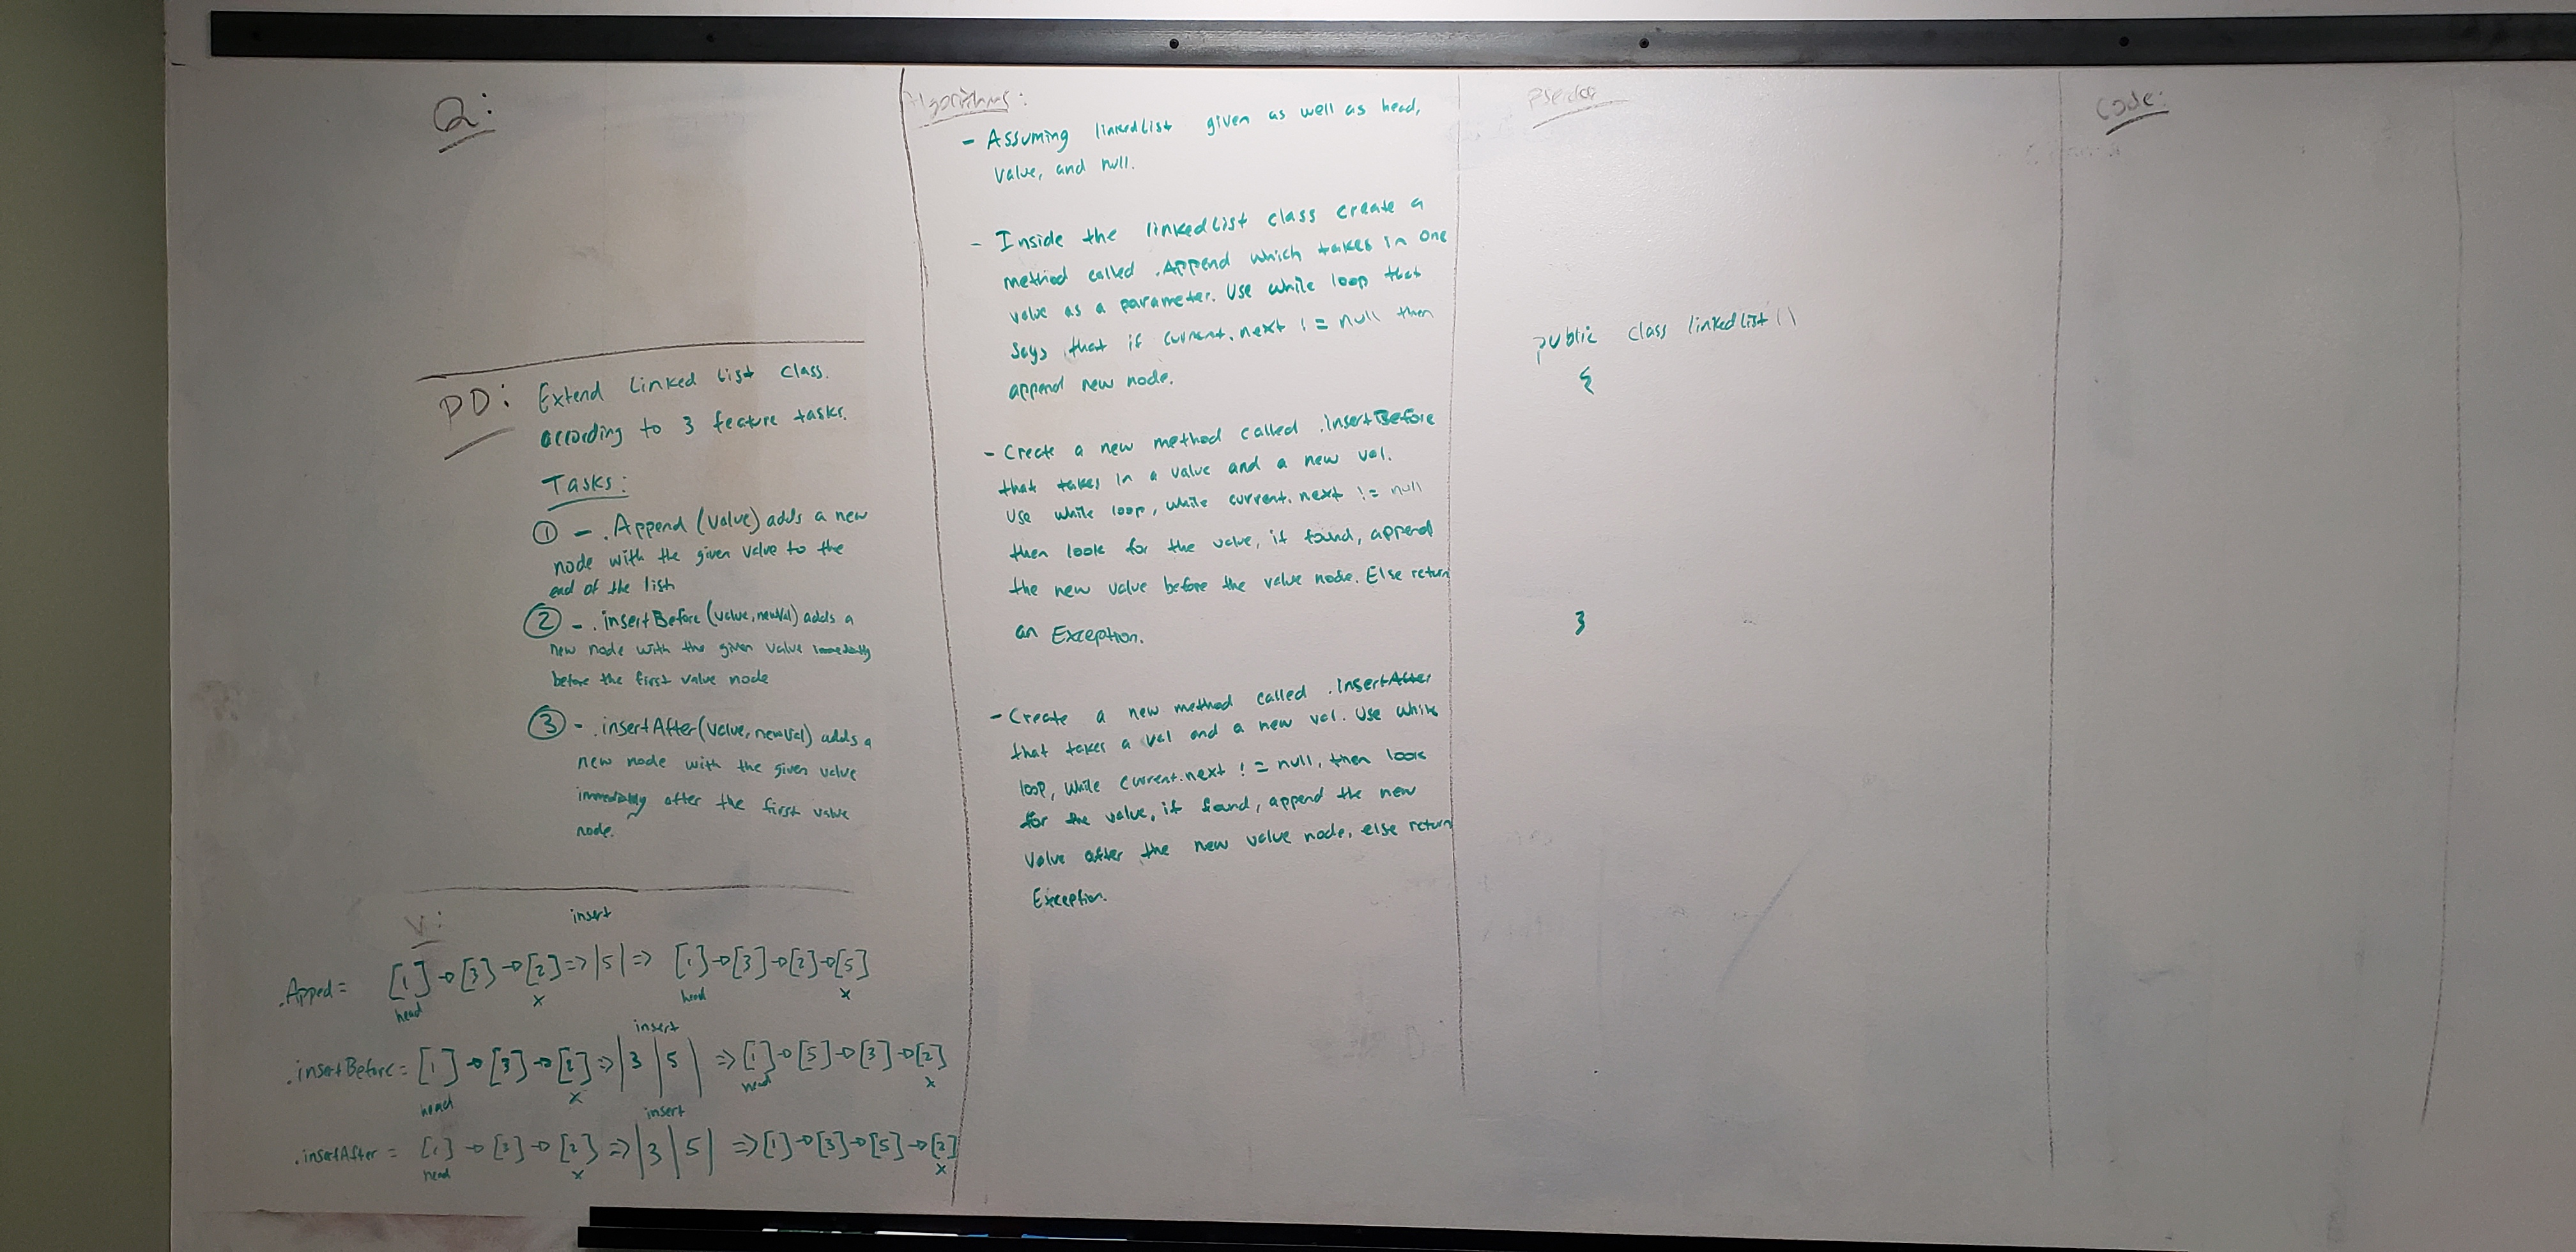 Q:
PD: Extend Linked List class.
according to 3 feature tasks.
Tasks:
① - .Append (value) adds a new
node with the given value to the
end of the list
② - .insertBefore (value, newVal) adds a
new node with the given value immediately
before the first value node
③ - .insertAfter (value, newVal) adds a
new node with the given value
immediately after the first value
node.
V:
insert
.Apped = [1] → [3] → [2] => |5| => [1] → [3] → [2] → [5]
head x head x
insert
.insertBefore = [1] → [3] → [2] => |3|5| => [1] → [5] → [3] → [2]
head x head x
insert
.insertAfter = [1] → [3] → [2] => |3|5| => [1] → [3] → [5] → [2]
head x x
Algorithms:
- Assuming linkedlist given as well as head,
value, and null.
- Inside the linkedlist class create a
method called .Append which takes in one
value as a parameter. Use while loop that
says that if current.next != null then
append new node.
- Create a new method called .InsertBefore
that takes in a value and a new val.
Use while loop, while current.next != null
then look for the value, if found, append
the new value before the value node. Else return
an Exception.
- Create a new method called .InsertAfter
that takes a val and a new val. Use while
loop, while current.next != null, then look
for the value, if found, append the new
value after the new value node, else return
Exception.
Pseudo
public class linkedlist()
{
}
Code: